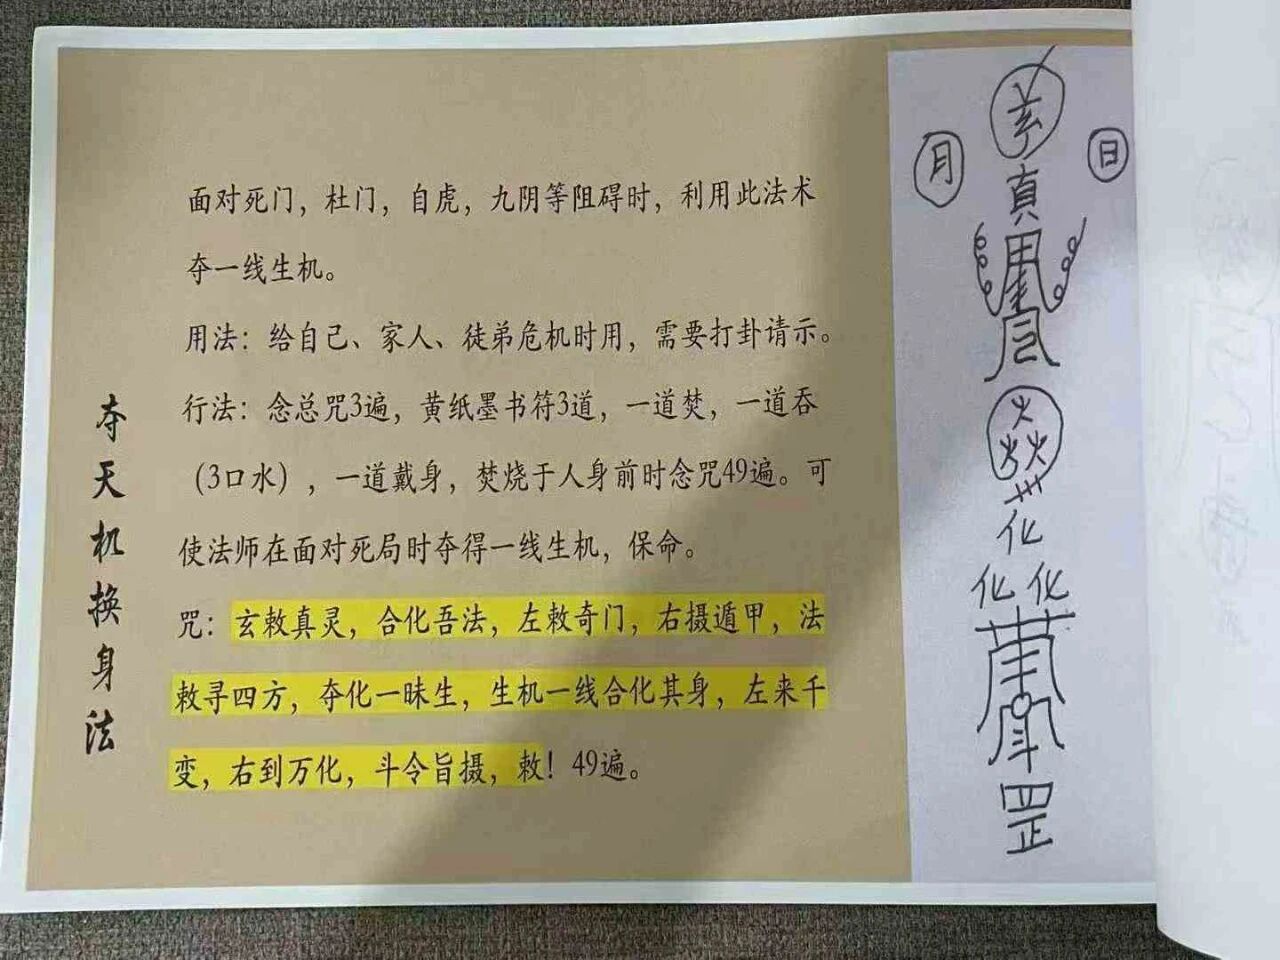 夺天机换身法
面对死门，杜门，自虎，九阴等阻碍时，利用此法术
夺一线生机。
用法：给自己、家人、徒弟危机时用，需要打卦请示。
行法：念总咒3遍，黄纸墨书符3道，一道焚，一道吞
（3口水），一道戴身，焚烧于人身前时念咒49遍。可
使法师在面对死局时夺得一线生机，保命。
咒：玄敕真灵，合化吾法，左敕奇门，右摄遁甲，法
敕寻四方，夺化一昧生，生机一线合化其身，左来千
变，右到万化，斗令旨摄，敕！49遍。
玄
月
日
真
化
化化
罡